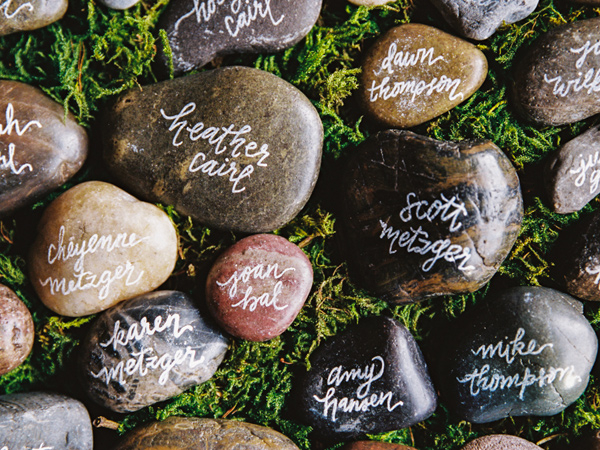 cairl
dawn
thompson
heather
cairl
scott
metzger
cheyenne
metzger
joan
bal
karen
metzger
amy
hansen
mike
thompson